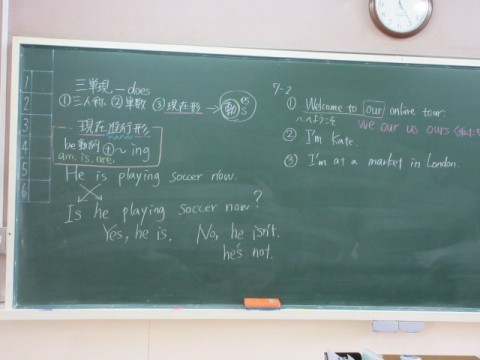 1
2
3
4
5
6
三単現 — does
①三人称 ②単数 ③現在形 → 動 es s
現在進行形
be動詞 + ~ing
am. is. are.
He is playing soccer now.
Is he playing soccer now?
Yes, he is. No, he isn't.
he's not.
7-2
① Welcome to our online tour.
へようこそ we our us ours
② I'm Kate.
③ I'm at a market in London.